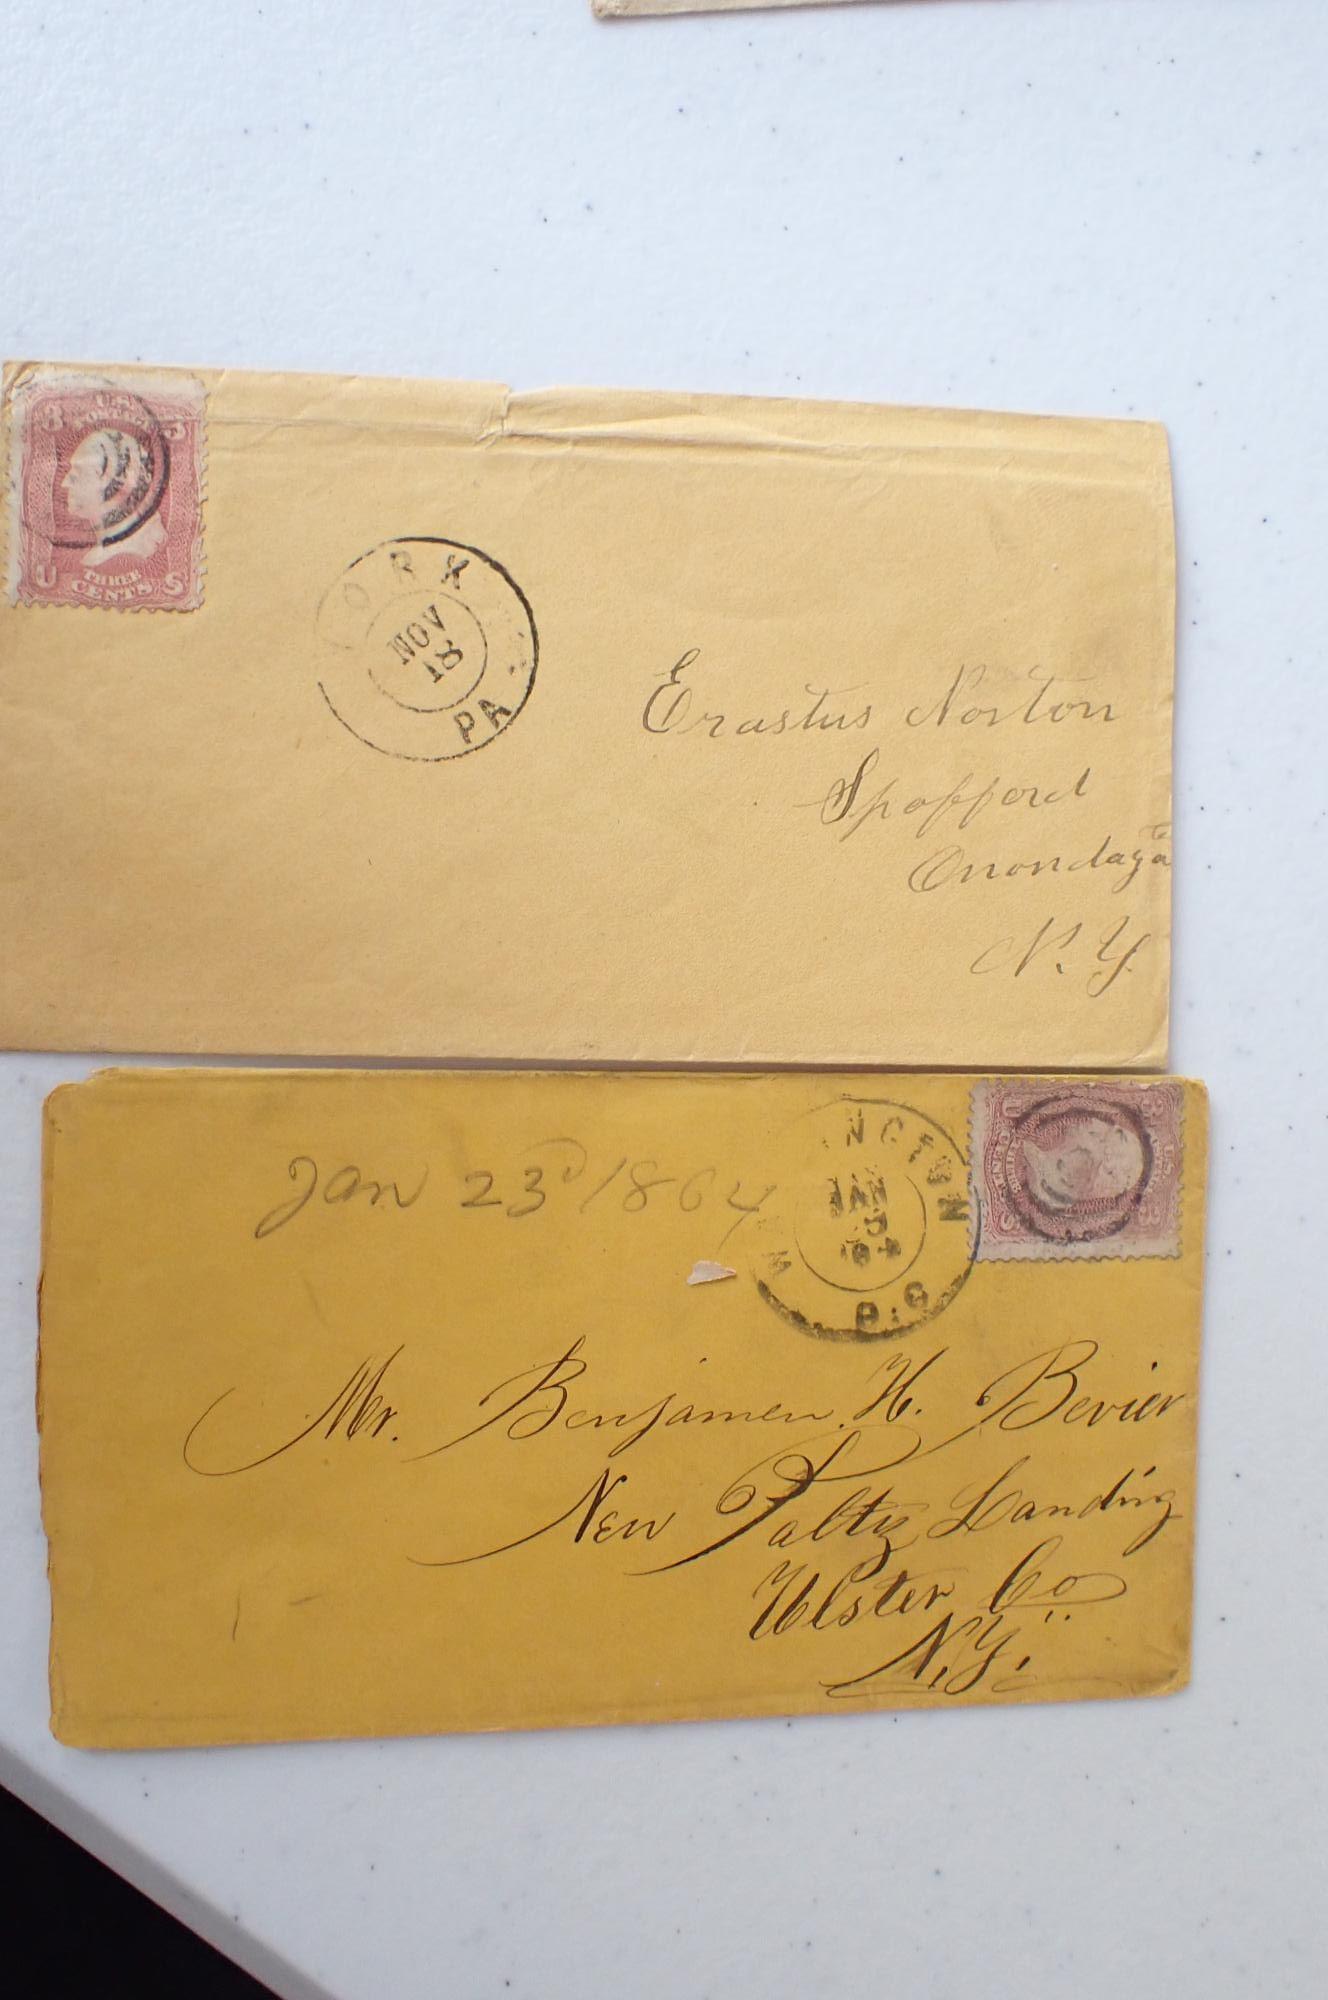 3 3
U.S.
POSTAGE
U S
THREE
CENTS
YORK
NOV
18
PA
Erastus Norton
Spafford
Onondaga Co
N.Y.
Jan 23d 1864
D.C.
Mr. Benjamen H. Bevier
New Paltz Landing
Ulster Co
N.Y.